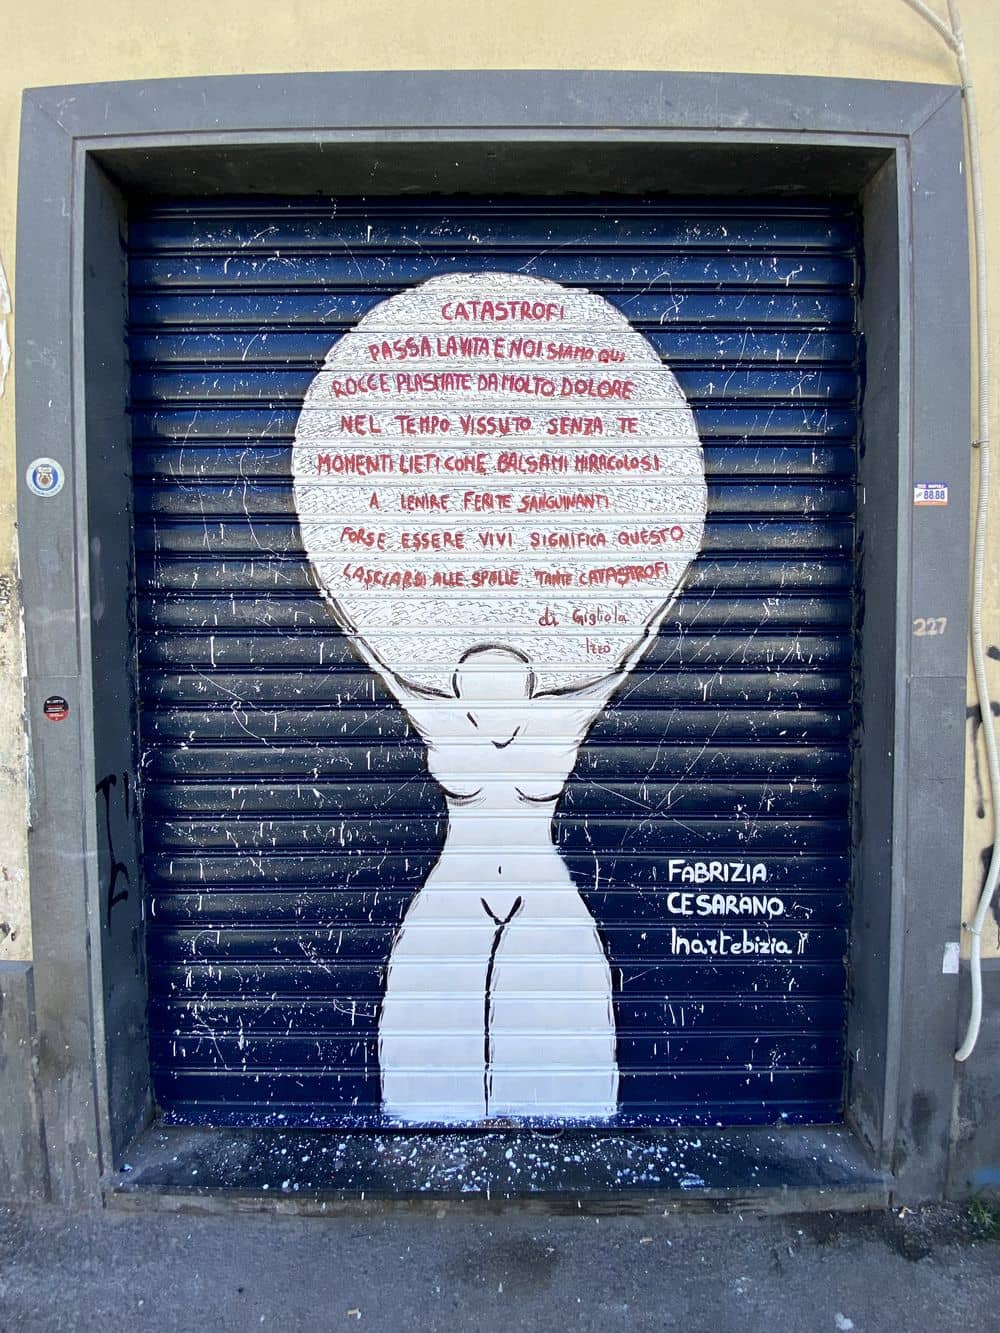 CATASTROFI
PASSA LA VITA E NOI SIAMO QUI
ROCCE PLASMATE DA MOLTO DOLORE
NEL TEMPO VISSUTO SENZA TE
MOMENTI LIETI COME BALSAMI MIRACOLOSI
A LENIRE FERITE SANGUINANTI
FORSE ESSERE VIVI SIGNIFICA QUESTO
LASCIARSI ALLE SPALLE TANTE CATASTROFI
di Gigliola
Izzo
FABRIZIA
CESARANO
Inartebizia
88.88
227